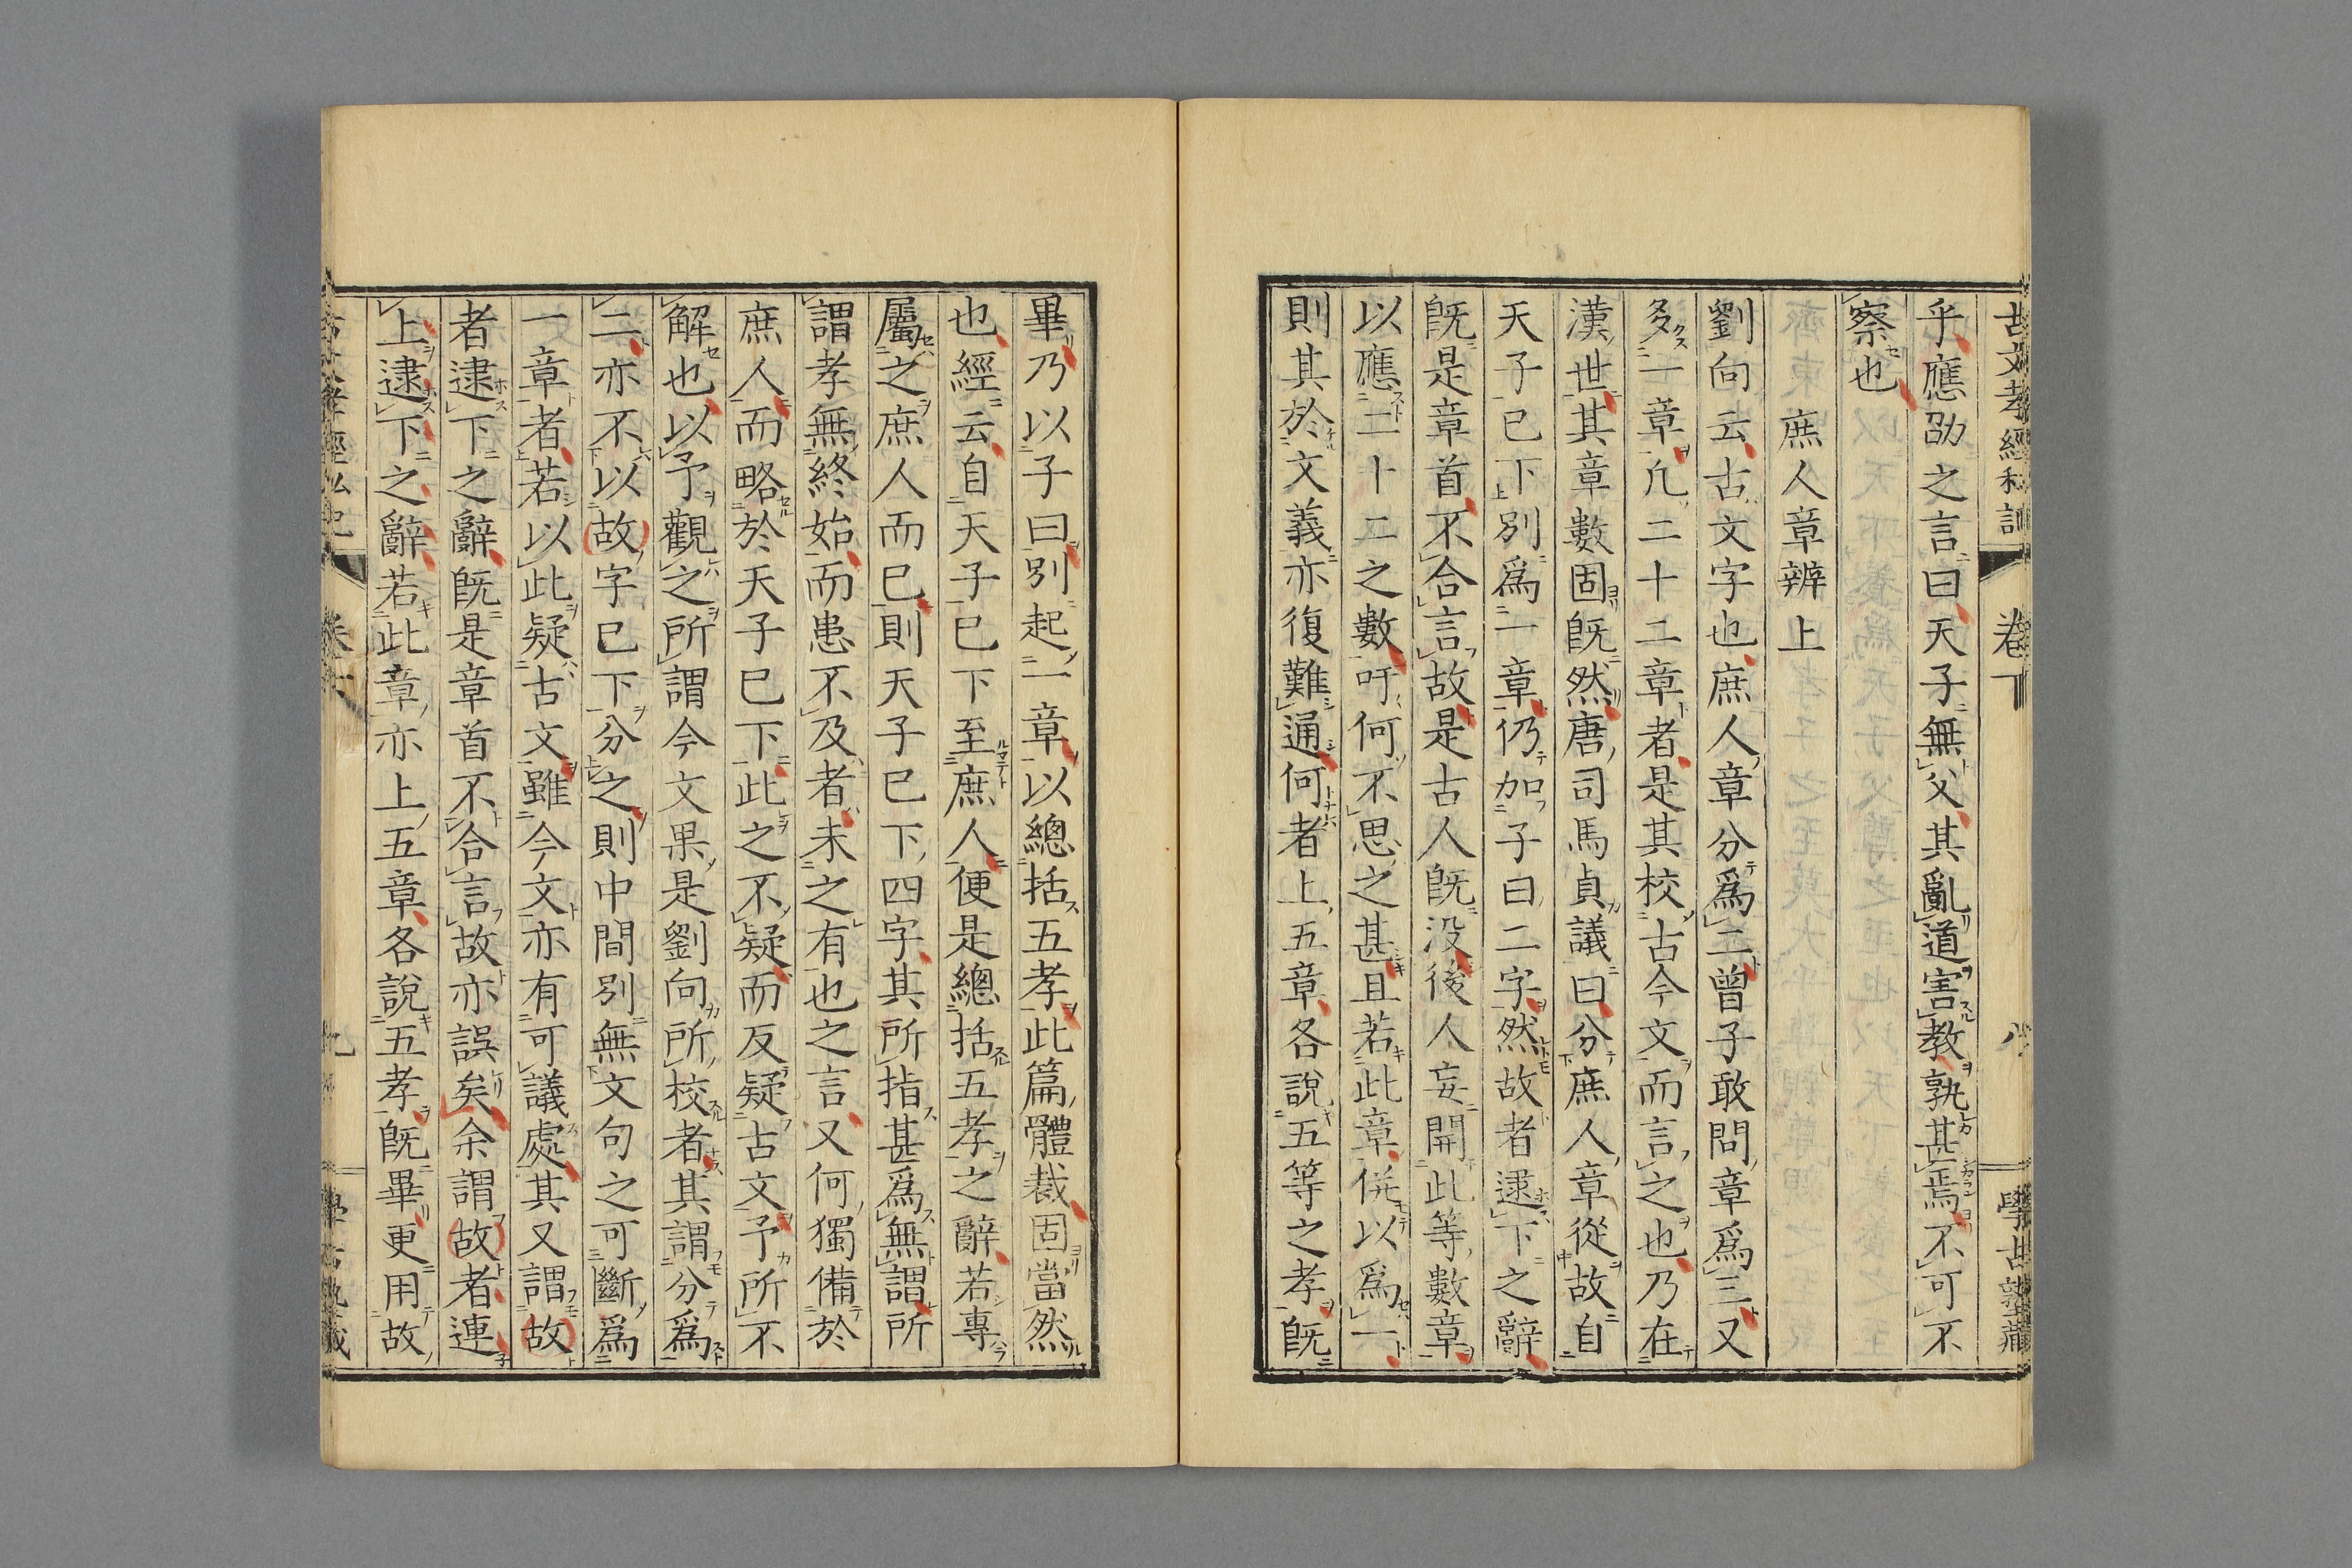 古文孝經私記 卷下 八 學古塾藏
乎應劭之言曰天子無父其亂道害教孰甚焉不可不
察也
庶人章辨上
劉向云古文字也庶人章分爲二曾子敢問章爲三又
多一章凡二十二章者是其校古今文而言之也乃在
漢世其章數固既然唐司馬貞議曰分庶人章從故自
天子已下別爲一章仍加子曰二字然故者逮下之辭
既是章首不合言故是古人既没後人妄開此等數章
以應二十二之數吁何不思之甚且若此章併以爲一
則其於文義亦復難通何者上五章各説五等之孝既
畢乃以子曰別起一章以總括五孝此篇體裁固當然
也經云自天子已下至庶人便是總括五孝之辭若專
屬之庶人而已則天子已下四字其所指甚爲無謂所
謂孝無終始而患不及者未之有也之言又何獨備於
庶人而略於天子已下此之不疑而反疑古文予所不
解也以予觀之所謂今文果是劉向所校者其謂分爲
二亦不以故字已下分之則中間別無文句之可斷爲
一章者若以此疑古文雖今文亦有可議處其又謂故
者逮下之辭既是章首不合言故亦誤矣余謂故者連
上逮下之辭若此章亦上五章各説五孝既畢更用故